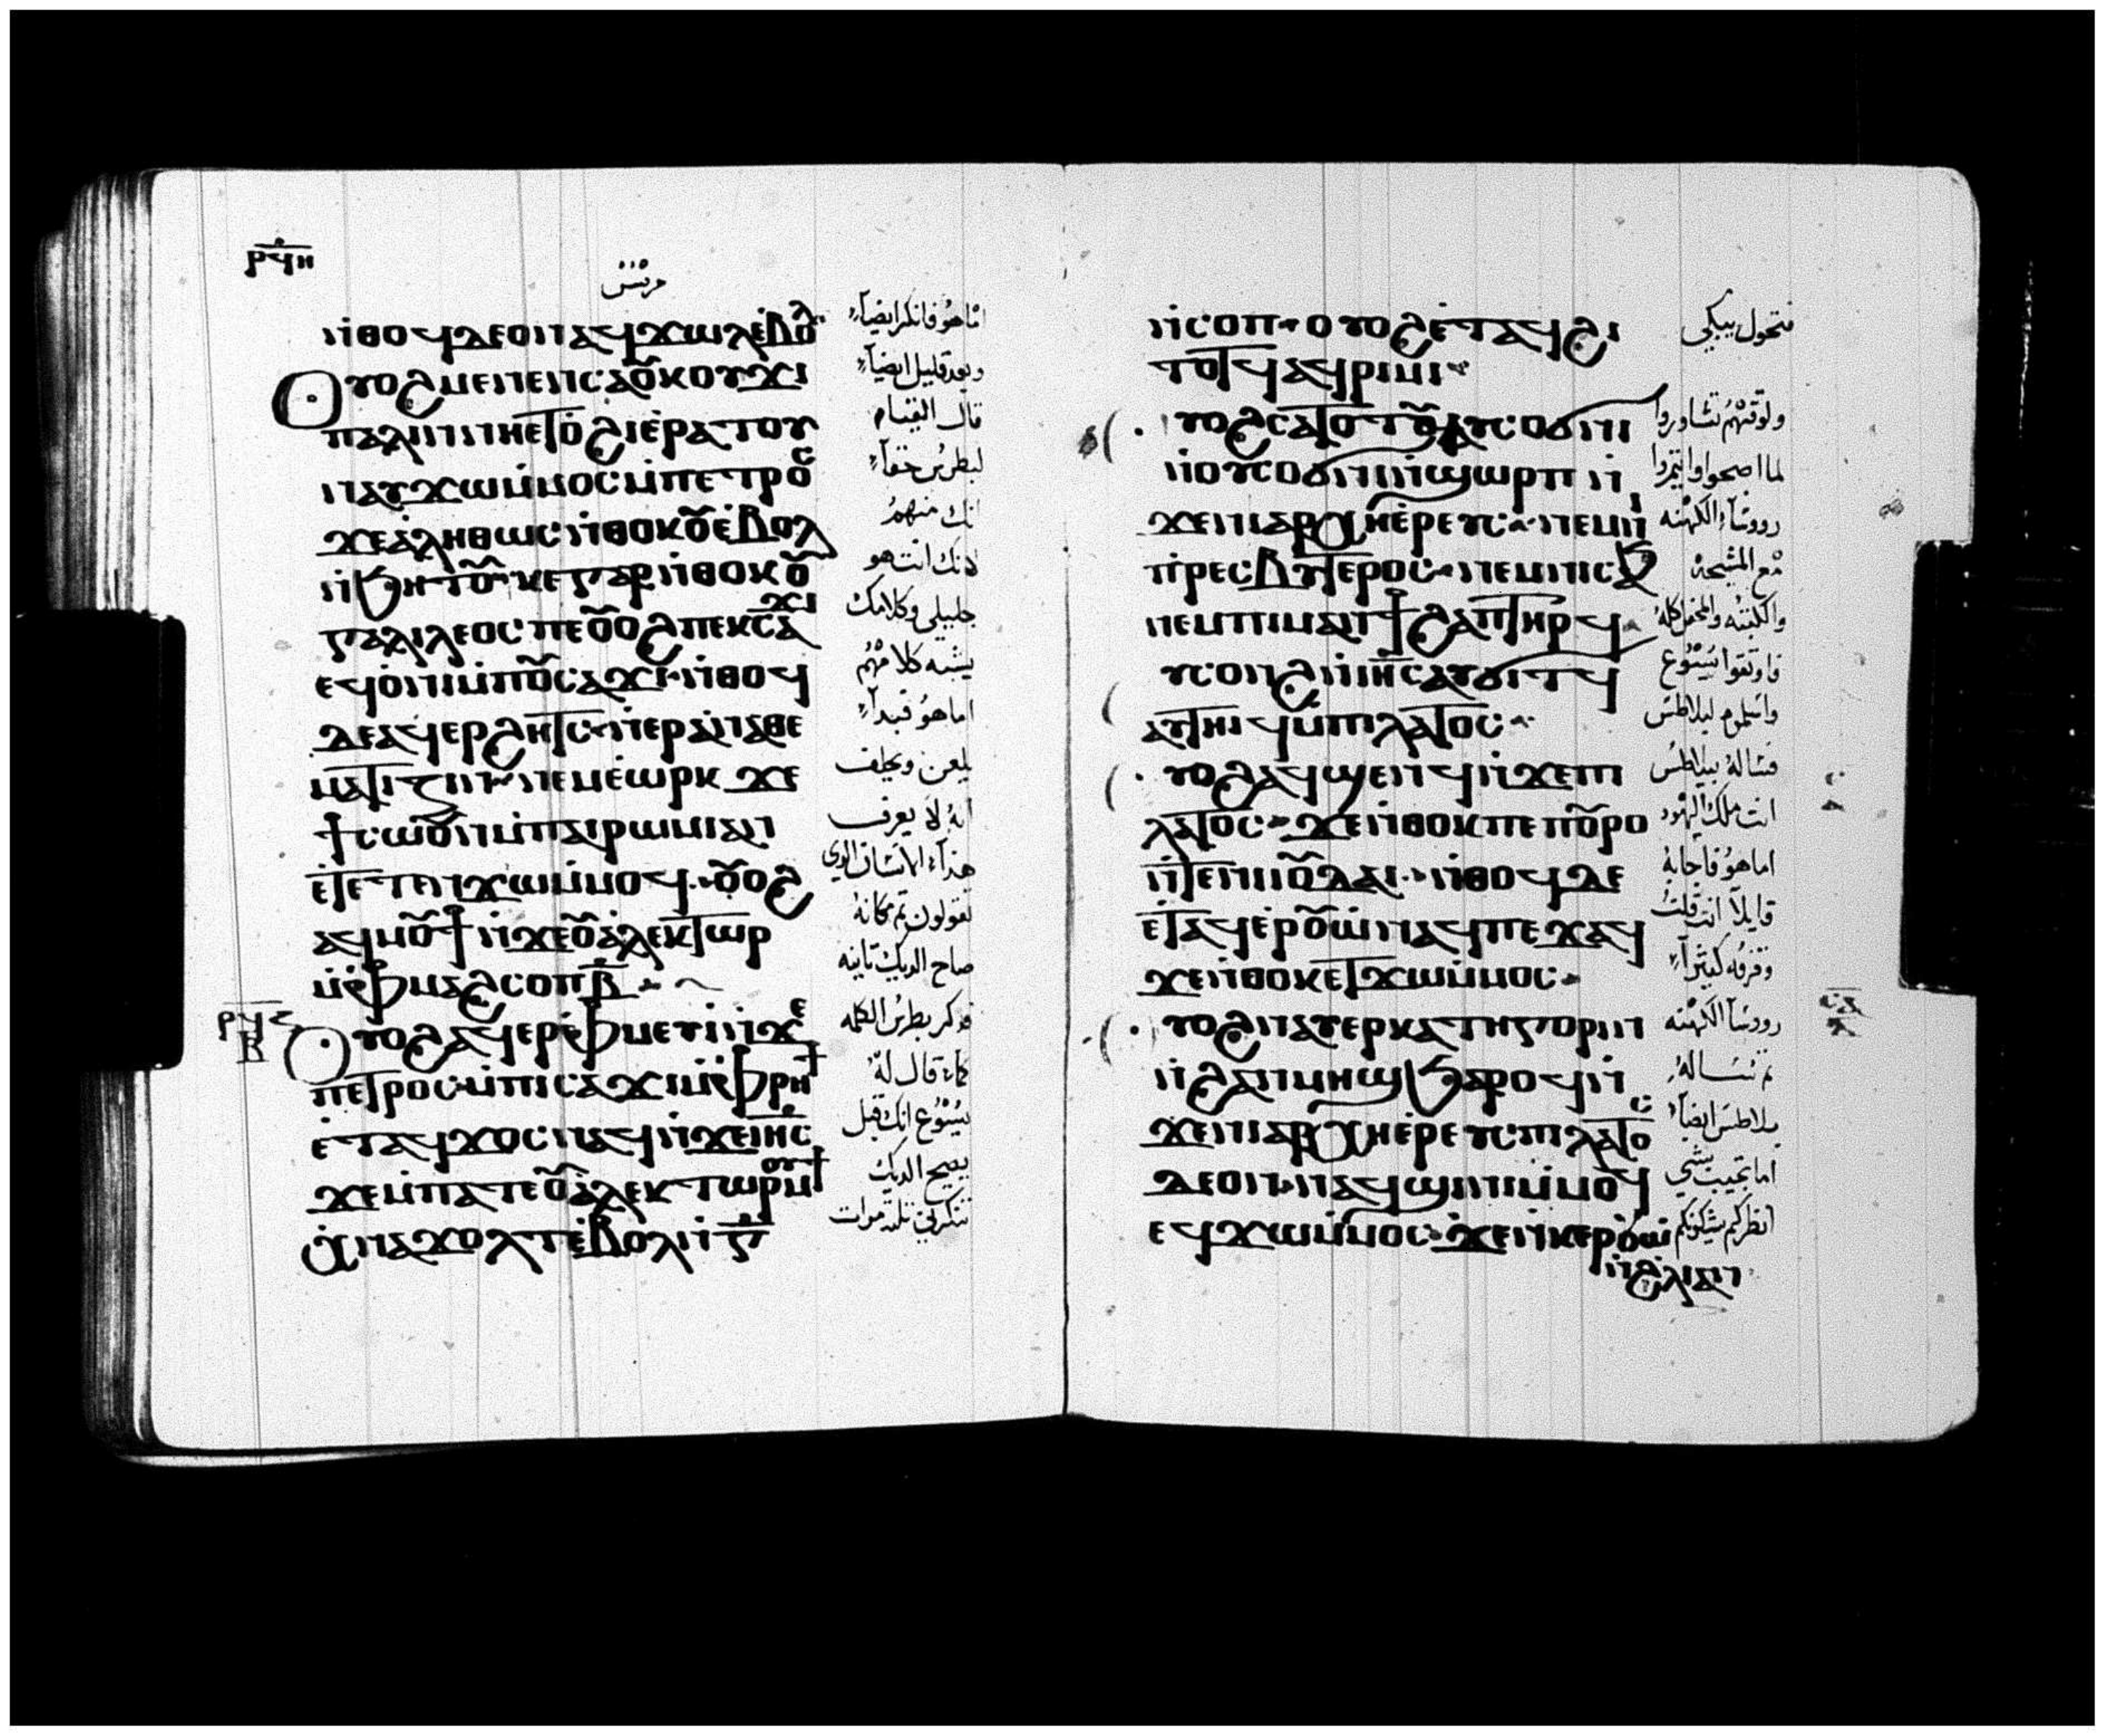 ⲣ̅ϥ̅ⲏ̅
مرقس
ⲛ̇ⲑⲟϥⲇⲉⲟⲛⲁϥϫⲱⲗⲉ̇ⲃⲟⲗ
ⲟⲩⲟϩⲙⲉⲛⲉⲛⲥⲁⲟⲩⲕⲟⲩϫⲓ
ⲡⲁⲗⲓⲛⲛⲏⲉⲧⲟϩⲓⲉ̇ⲣⲁⲧⲟⲩ
ⲛⲁⲩϫⲱⲙ̇ⲙⲟⲥⲙ̇ⲡⲉⲧⲣⲟⲥ
ϫⲉⲁ̇ⲗⲏⲑⲱⲥⲛ̇ⲑⲟⲕⲟⲩⲉ̇ⲃⲟⲗ
ⲛ̇ϧⲏⲧⲟⲩ·ⲕⲉⲅⲁⲣⲛ̇ⲑⲟⲕⲟⲩ
ⲅⲁⲗⲓⲗⲉⲟⲥⲡⲉⲟⲩⲟϩⲡⲉⲕⲥⲁϫⲓ
ⲉϥⲟ̇ⲛⲓⲙ̇ⲡⲟⲩⲥⲁϫⲓ·ⲛ̇ⲑⲟϥ
ⲇⲉⲁϥⲉⲣϩⲏⲧⲥ·ⲛ̇ⲉⲣⲁⲛⲁⲑⲉ
ⲙⲁⲧⲓⲍⲓⲛ·ⲛⲉⲙⲉ̇ⲱⲣⲕϫⲉ
ϯⲥⲱⲟⲩⲛⲙ̇ⲡⲁⲓⲣⲱⲙⲓⲁⲛ
ⲉ̇ⲧⲉⲧⲉⲛϫⲱⲙ̇ⲙⲟϥ·ⲟⲩⲟϩ
ⲁϥⲙⲟⲩϯⲛ̇ϫⲉⲟⲩⲁ̇ⲗⲉⲕⲧⲱⲣ
ⲙ̇ⲫⲙⲁϩⲥⲟⲡⲃ̅
ⲟⲩⲟϩⲁϥⲉⲣⲫⲙⲉⲩⲓⲛ̇ϫⲉ
ⲡⲉⲧⲣⲟⲥ·ⲙ̇ⲡⲓⲥⲁϫⲓⲙ̇ⲫⲣⲏϯ
ⲉ̇ⲧⲁϥϫⲟⲥⲛⲁϥⲛ̇ϫⲉⲓⲏⲥ
ϫⲉⲙ̇ⲡⲁⲧⲉⲟⲩⲁ̇ⲗⲉⲕⲧⲱⲣⲙⲟⲩϯ
ⲭ̇ⲛⲁϫⲟⲗⲧⲉ̇ⲃⲟⲗⲛ̇ⲅ̅
اما هو فانكر ايضآء
وبعد قليل ايضآء
قال القيام
لبطرس حقآء
انك منهم
لانك انت هو
جليلي وكلامك
يشبه كلامهم
اما هو فبدآء
يلعن ويحلف
انه لا يعرف
هذآء الانسان الدي
تقولون تم مكانه
صاح الديك تانيه
فدكر بطرس الكلمه
كما قال له
يسوع انك قبل
يصيح الديك
تنكرني تلته مرات
ⲛ̇ⲥⲟⲡ·ⲟⲩⲟϩⲉ̇ⲧⲁϥϩⲓ
ⲧⲟⲧϥⲁϥⲣⲓⲙⲓ
ⲟⲩⲟϩⲥⲁⲧⲟⲧⲟⲩⲁⲩⲥⲟϭⲛⲓ
ⲛ̇ⲟⲩⲥⲟϭⲛⲓⲛ̇ϣⲱⲣⲡⲛ̇
ϫⲉⲛⲓⲁⲣⲭⲏⲉ̇ⲣⲉⲩⲥ·ⲛⲉⲙⲛⲓ
ⲡⲣⲉⲥⲃⲩⲧⲉⲣⲟⲥ·ⲛⲉⲙⲛⲓⲥⲁϧ
ⲛⲉⲙⲡⲓⲙⲁⲛϯϩⲁⲡⲧⲏⲣϥ
ⲩⲥⲟⲛϩⲛ̇ⲓⲏⲥⲁⲩϭⲓⲧϥ
ⲁⲩⲧⲏⲓϥⲙ̇ⲡⲓⲗⲁⲧⲟⲥ
ⲟⲩⲟϩⲁϥϣⲉⲛϥⲛ̇ϫⲉⲡⲓ
ⲗⲁⲧⲟⲥ·ϫⲉⲛ̇ⲑⲟⲕⲡⲉⲡⲟⲩⲣⲟ
ⲛ̇ⲧⲉⲛⲓⲓⲟⲩⲇⲁⲓ·ⲛ̇ⲑⲟϥⲇⲉ
ⲉ̇ⲧⲁϥⲉ̇ⲣⲟⲩⲱ̇ⲛⲁϥⲡⲉϫⲁϥ
ϫⲉⲛ̇ⲑⲟⲕⲉⲧϫⲱⲙ̇ⲙⲟⲥ
ⲟⲩⲟϩⲛⲁⲩⲉⲣⲕⲁⲧⲏⲅⲟⲣⲓⲛ
ⲛ̇ϩⲁⲛⲙⲏϣϧⲁⲣⲟϥⲛ̇
ϫⲉⲛⲓⲁⲣⲭⲏⲉ̇ⲣⲉⲩⲥ·ⲡⲓⲗⲁⲧⲟⲥ
ⲇⲉⲟⲛ·ⲛⲁϥϣⲓⲛⲓⲙ̇ⲙⲟϥ
ⲉϥϫⲱⲙ̇ⲙⲟⲥ·ϫⲉⲛ̇ⲕⲉⲣⲟⲩⲱ̇
ⲛ̇ϩⲗⲓⲁⲛ
فتحول يبكي
ولوقتهم تشاوروا
لما اصبحوا وايتمروا
رووسآء الكهنه
مع المشيخه
والكتبه والمحفل كله
فاوتقوا يسوع
واسلموه لبيلاطس
فساله بيلاطس
انت ملك اليهود
اما هو فاجابه
قايلاً انت قلت
وقرفه كتيرآء
رووسآ الكهنه
تم تساله
بيلاطس ايضآء
اما تجيب بشي
انظر كم يشكونكم